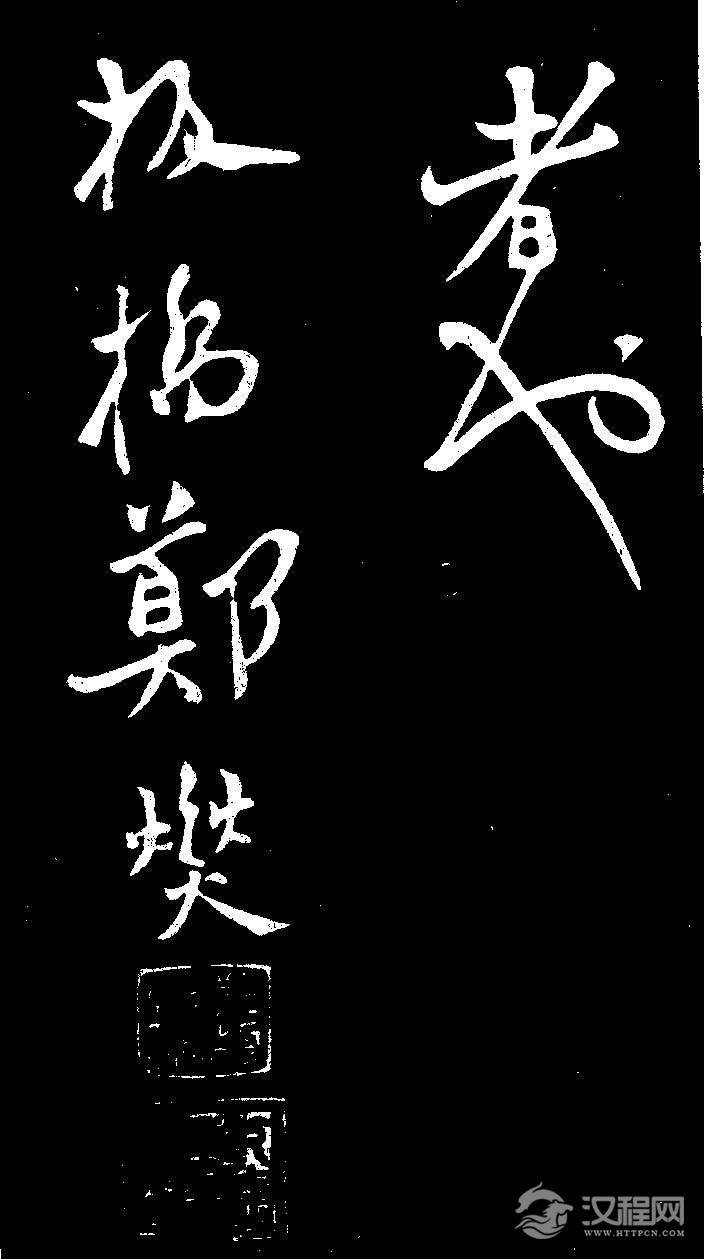 者也
板橋鄭燮
汉程网
WWW.HTTPCN.COM